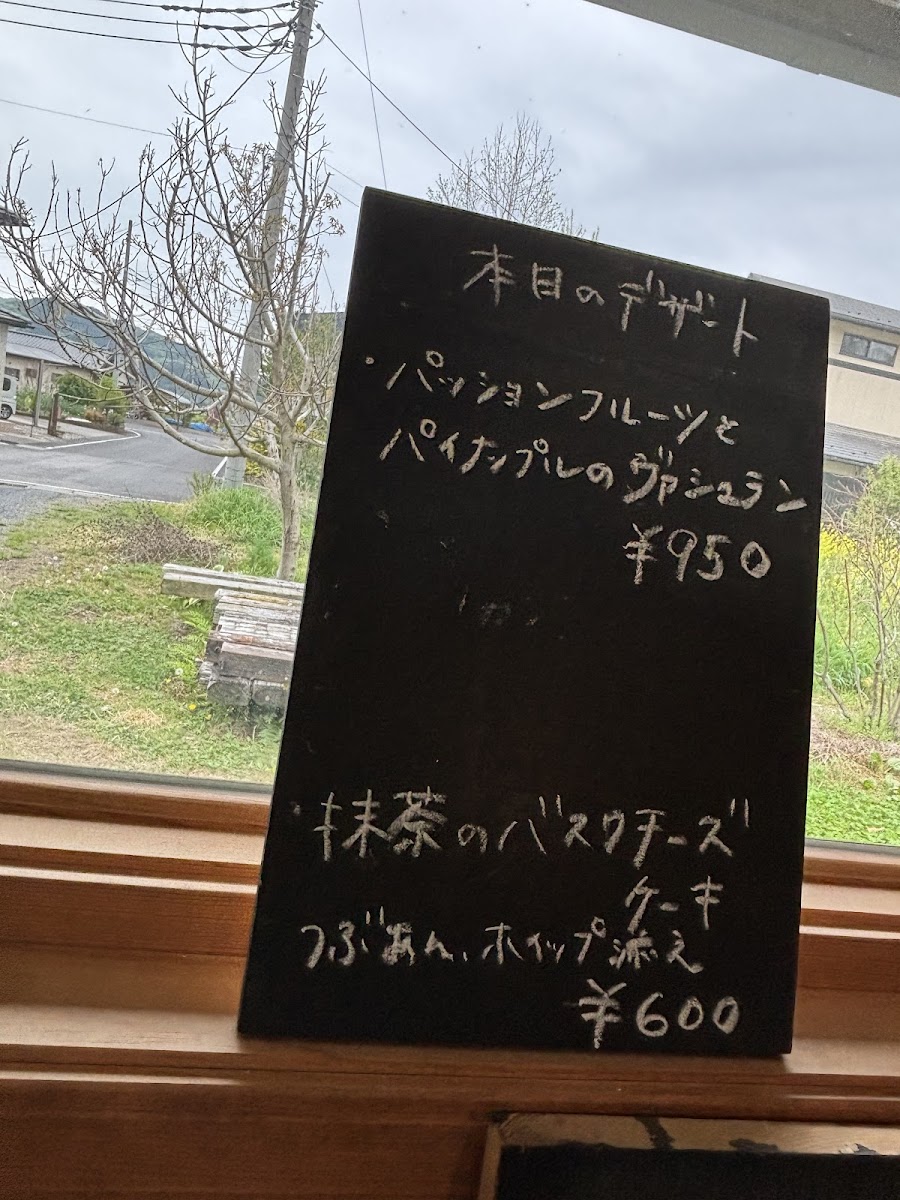 本日のデザート
・パッションフルーツと
パイナップルのヴァシュラン
¥950
・抹茶のバスクチーズ
ケーキ
つぶあん、ホイップ添え
¥600